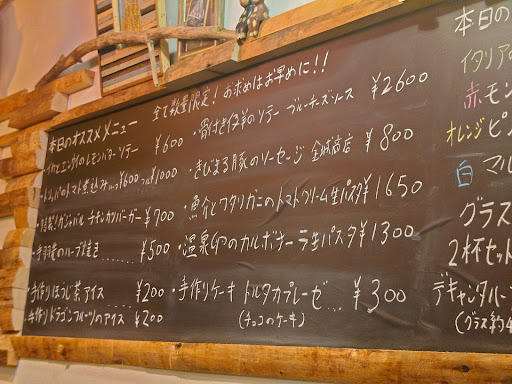 本日のオススメメニュー 全て数量限定！お求めはお早めに！！
・イカとエンサイのレモンバターソテー ¥600
・トリッパのトマト煮込み ハーフ¥600 フル¥1000
チキンカツバーガー ¥700
・手羽先のハーブ焼き ¥500
・手作りほうじ茶アイス ¥200
・手作りドラゴンフルーツのアイス ¥200
・骨付き仔羊のソテー ブルーチーズソース ¥2600
・きびまる豚のソーセージ 金城商店 ¥800
・魚介とワタリガニのトマトクリーム生パスタ ¥1650
・温泉卵のカルボナーラ生パスタ ¥1300
・手作りケーキ トルタカプレーゼ… ¥300
(チョコのケーキ)
本日の
イタリアの
赤 モン
オレンジ ピン
白 マル
グラス
2杯セット
デキャンタハー
(グラス約4